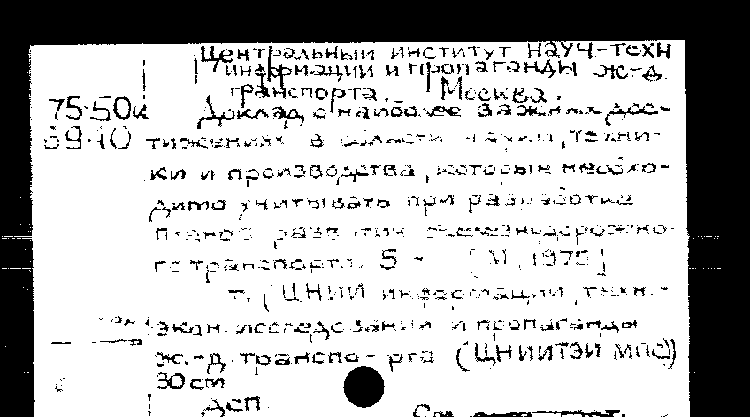 Центральный институт науч-техн
информации и пропаганды ж-д.
транспорта. Москва.
75-50к Доклад о наиболее важных дос-
39-10 тижениях в области науки, техни-
ки и производства, которые необхо-
димо учитывать при разработке
планов развития железнодорожно-
го транспорта. 5- [М, 1975]
т. (ЦНИИ информации, техн.-
экон. исследований и пропаганды
ж.-д. транспо- рта (ЦНИИТЭИ МПС))
30 cm
ДСП.
См.